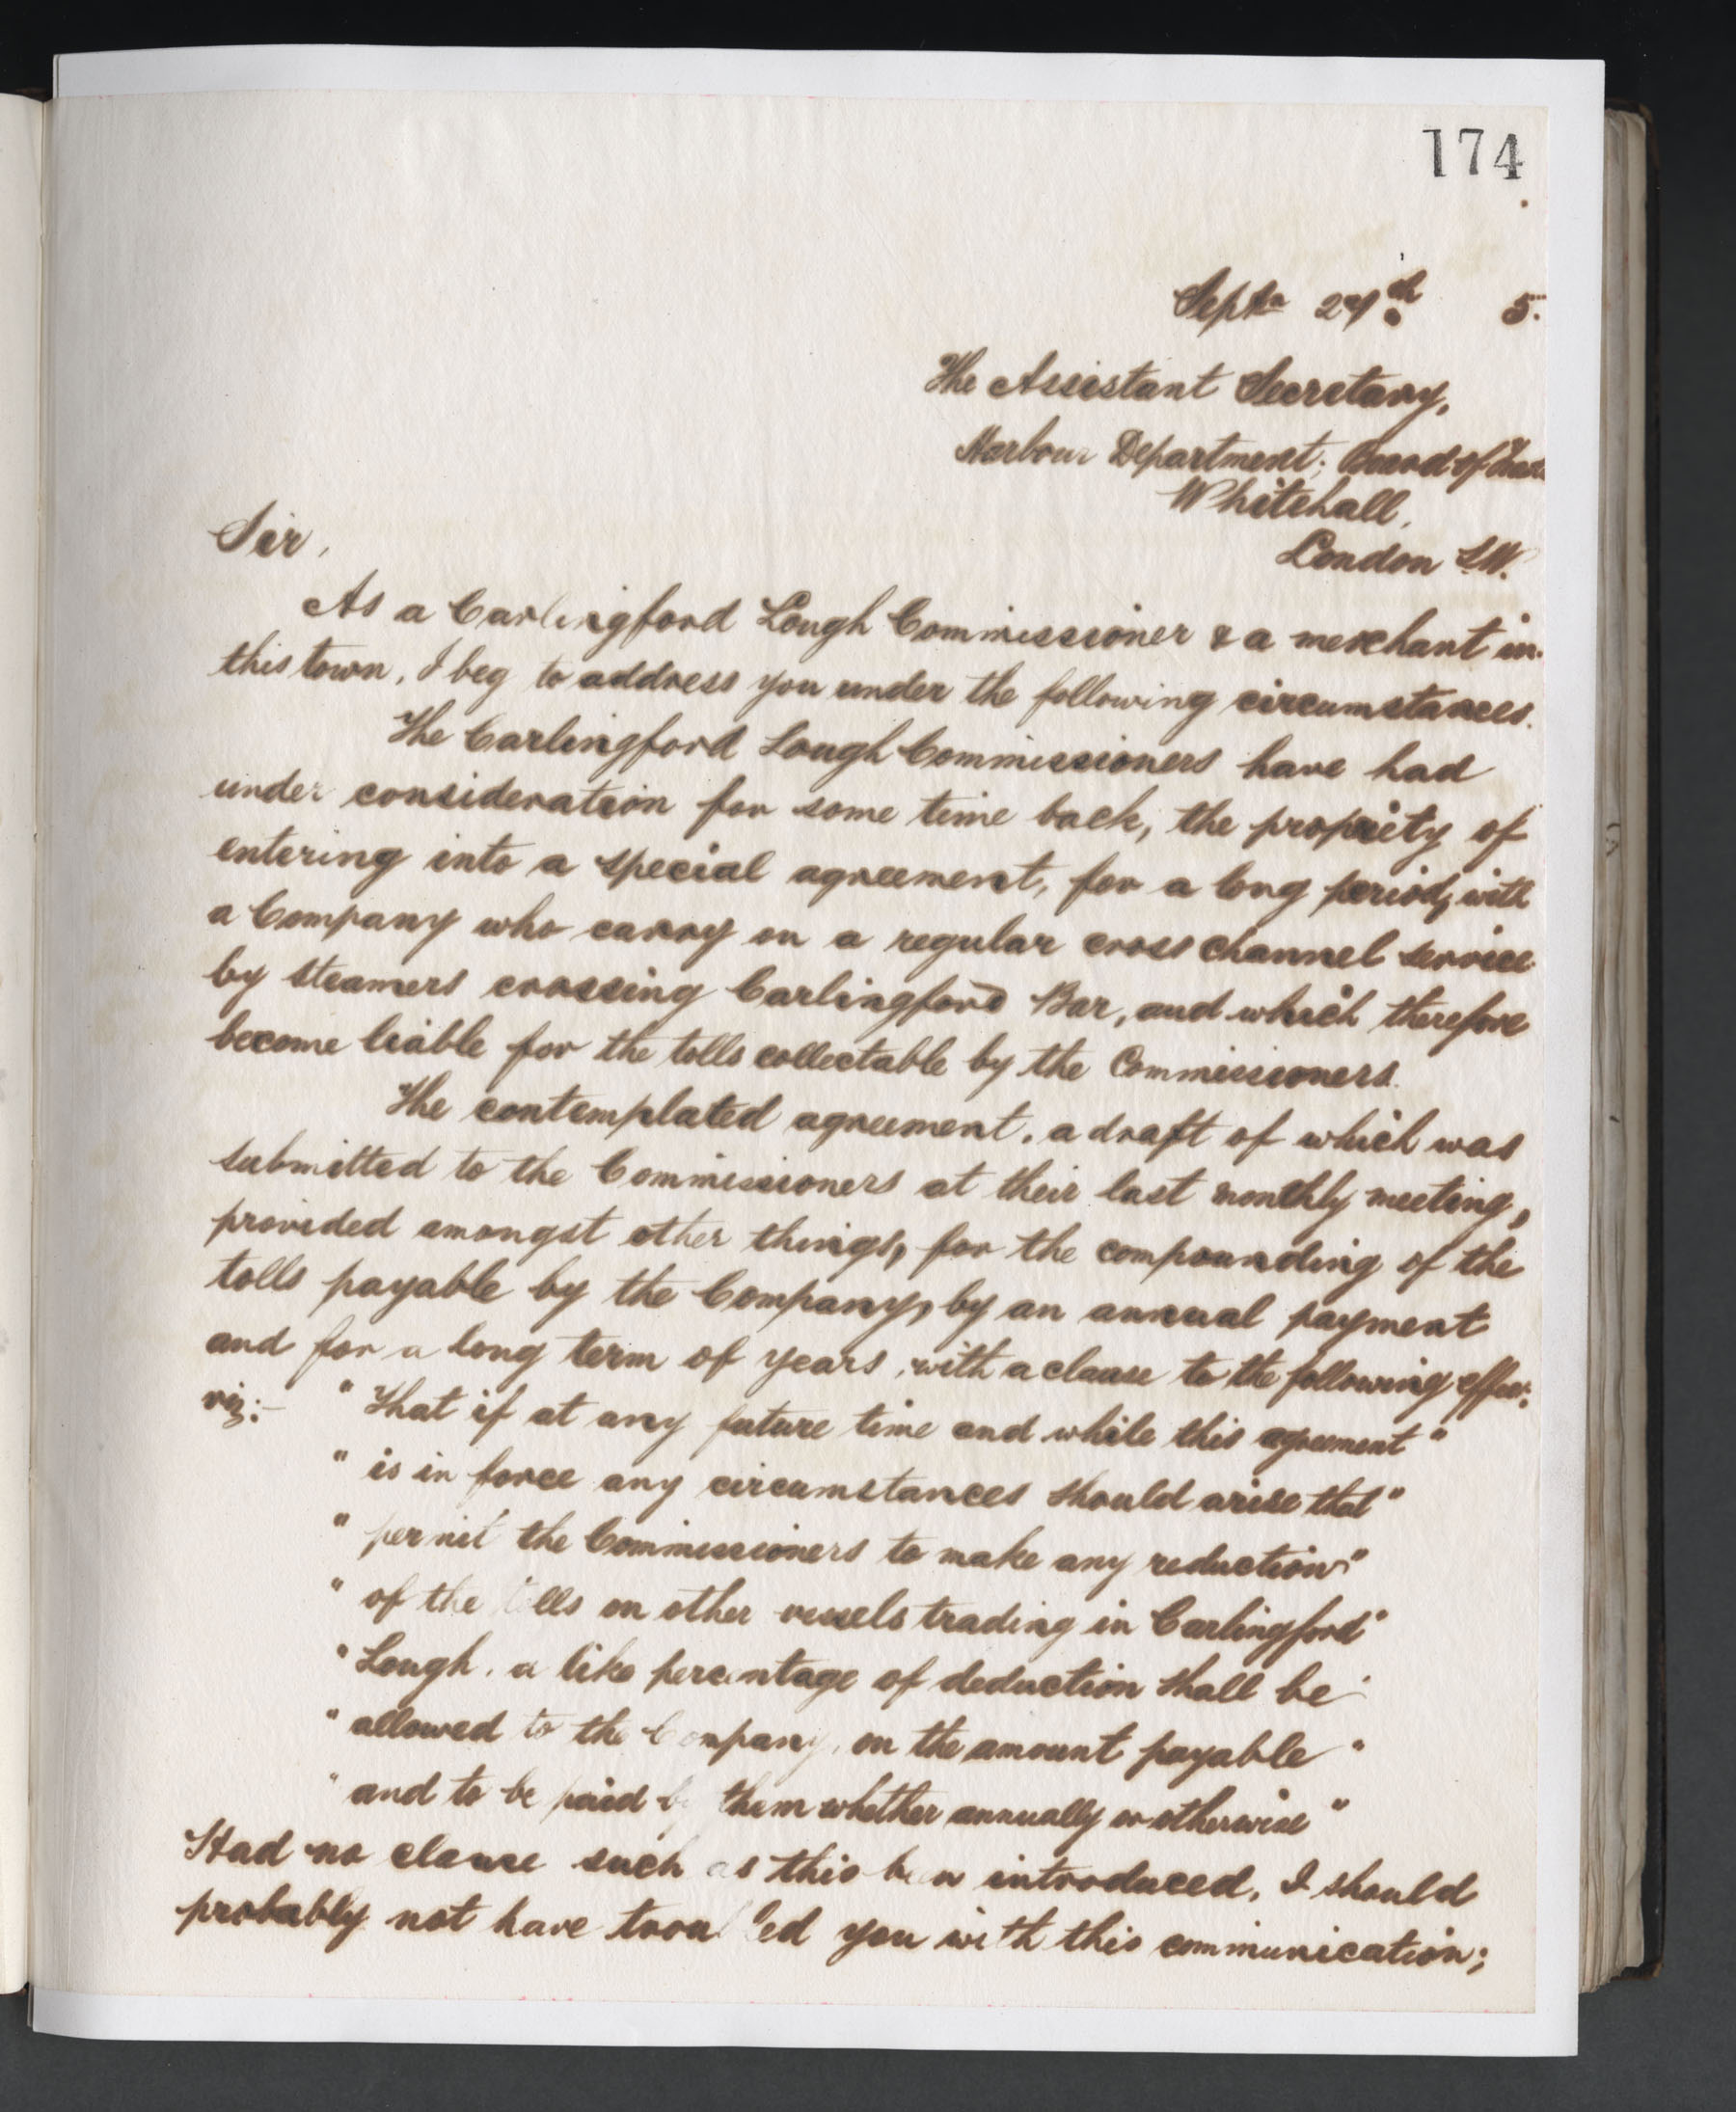 174
Septr 27th 5.
The Assistant Secretary,
Harbour Department; Board of Trade
Whitehall,
London S.W.
Sir,
As a Carlingford Lough Commissioner & a merchant in
this town, I beg to address you under the following circumstances.
The Carlingford Lough Commissioners have had
under consideration for some time back, the propriety of
entering into a special agreement, for a long period, with
a Company who carry on a regular cross channel service
by steamers crossing Carlingford Bar, and which therefore
become liable for the tolls collectable by the Commissioners.
The contemplated agreement, a draft of which was
submitted to the Commissioners at their last monthly meeting,
provided amongst other things, for the compounding of the
tolls payable by the Company, by an annual payment
and for a long term of years, with a clause to the following effect.
viz:- "That if at any future time and while this agreement"
"is in force any circumstances should arise that"
"permit the Commissioners to make any reduction"
"of the tolls on other vessels trading in Carlingford"
"Lough, a like percentage of deduction shall be"
"allowed to the Company, on the amount payable"
"and to be paid by them whether annually or otherwise"
Had no clause such as this been introduced, I should
probably not have troubled you with this communication;